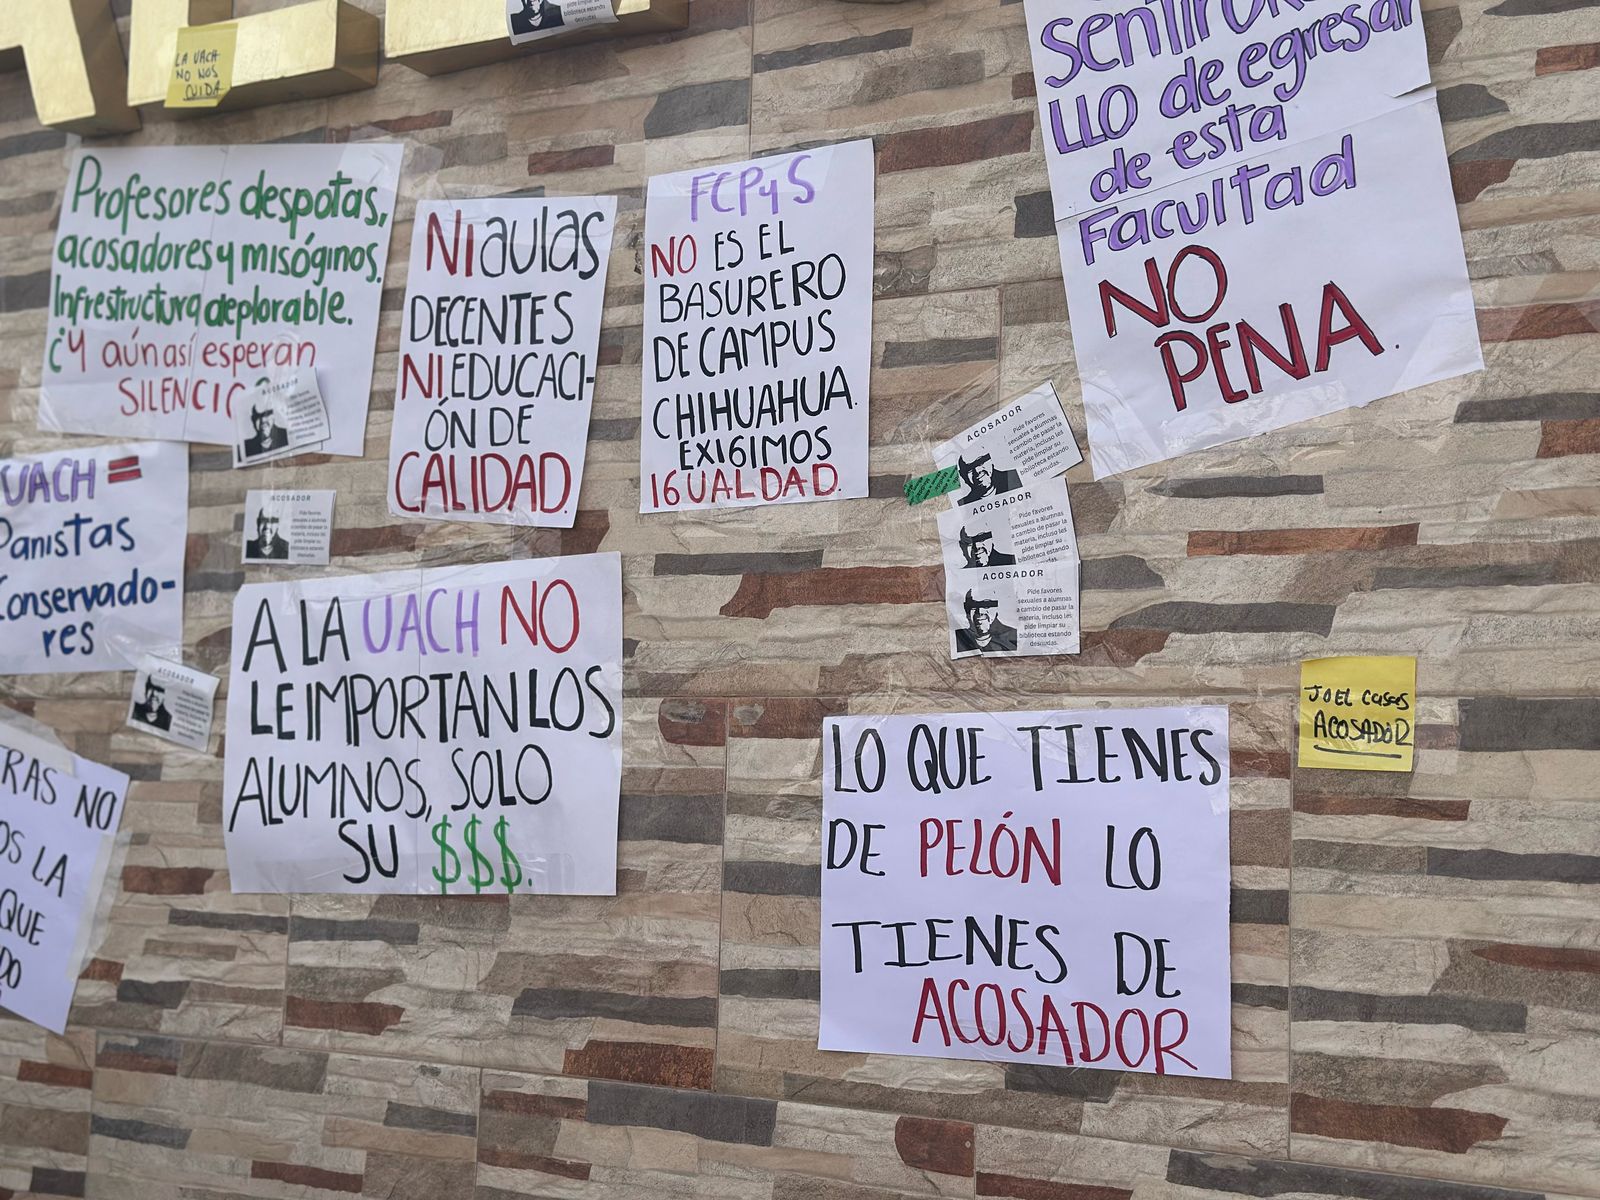 LA UACH
NO NOS
CUIDA
Profesores despotas,
acosadores y misóginos.
Infrestructura deplorable.
¿Y aún así esperan
SILENCIO
NI aulas
DECENTES
NI EDUCACI-
ÓN DE
CALIDAD.
FCPyS
NO ES EL
BASURERO
DE CAMPUS
CHIHUAHUA.
EXIGIMOS
IGUALDAD.
LLO de egresar
de esta
Facultad
NO
PENA.
UACH =
Panistas
Conservado-
res
ACOSADOR
ACOSADOR
Pide favores
sexuales a alumnas
a cambio de pasar la
materia, incluso les
pide limpiar su
biblioteca estando
desnudas.
ACOSADOR
Pide favores
sexuales a alumnas
a cambio de pasar la
materia, incluso les
pide limpiar su
biblioteca estando
desnudas.
ACOSADOR
Pide favores
sexuales a alumnas
a cambio de pasar la
materia, incluso les
pide limpiar su
biblioteca estando
ACOSADOR
Pide favores
sexuales a alumnas
a cambio de pasar la
materia, incluso les
pide limpiar su
biblioteca estando
desnudas.
ACOSADOR
A LA UACH NO
LE IMPORTAN LOS
ALUMNOS, SOLO
SU $$$.
LO QUE TIENES
DE PELÓN LO
TIENES DE
ACOSADOR
JOEL Casas
ACOSADOR
RAS NO
OS LA
QUE
DO